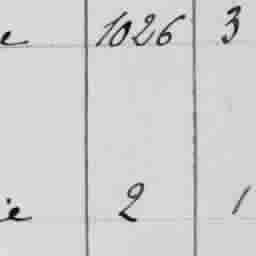 e 1026 3
ie 2 1